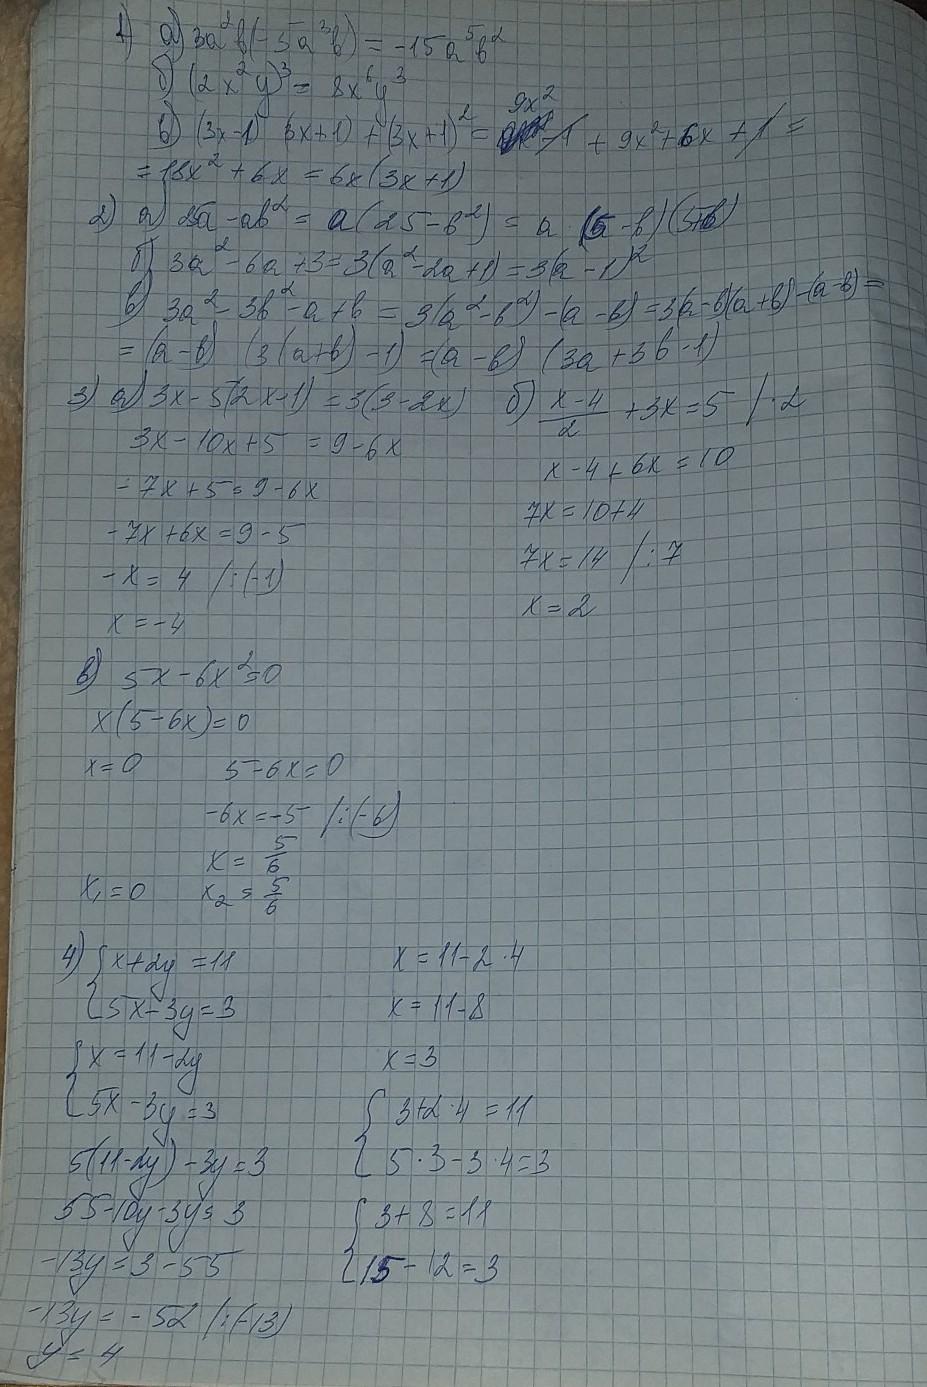 1) а) 3a²b(-5a³b) = -15a⁵b²
б) (2x²y)³ = 8x⁶y³
в) (3x-1) (3x+1) + (3x+1)² = 9x² - 1 + 9x² + 6x + 1 =
= 18x² + 6x = 6x(3x+1)
2) а) 25a - ab² = a(25-b²) = a (5-b)(5+b)
б) 3a² - 6a + 3 = 3(a² - 2a + 1) = 3(a-1)²
в) 3a² - 3b² - a + b = 3(a²-b²) - (a-b) = 3(a-b)(a+b) - (a-b) =
= (a-b) (3(a+b) - 1) = (a-b) (3a+3b-1)
3) а) 3x - 5(2x-1) = 3(3-2x)
3x - 10x + 5 = 9 - 6x
-7x + 5 = 9 - 6x
-7x + 6x = 9 - 5
-x = 4 /:(-1)
x = -4
б) (x-4)/2 + 3x = 5 /·2
x - 4 + 6x = 10
7x = 10 + 4
7x = 14 /:7
x = 2
в) 5x - 6x² = 0
x(5-6x) = 0
x = 0 5 - 6x = 0
-6x = -5 /:(-6)
x = 5/6
x₁ = 0 x₂ = 5/6
4) { x + 2y = 11
5x - 3y = 3
{ x = 11 - 2y
5x - 3y = 3
5(11-2y) - 3y = 3
55 - 10y - 3y = 3
-13y = 3 - 55
-13y = -52 /:(-13)
y = 4
x = 11 - 2·4
x = 11 - 8
x = 3
{ 3 + 2·4 = 11
5·3 - 3·4 = 3
{ 3 + 8 = 11
15 - 12 = 3